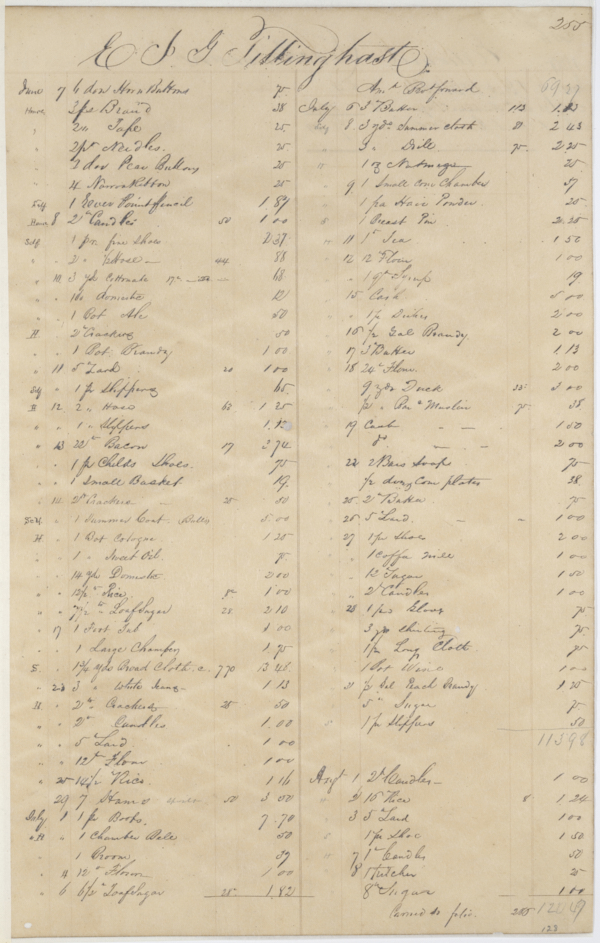 255
E J G Tillinghast
June 7 6 doz Horn Buttons 75
House 3 ps Braid 38
" Tape 25
2 pr Needles 25
3 doz Pearl Buttons 25
4 Narrow Ribbon 25
Self 1 Ever Point pencil 1.87
House 8 2 " Candles 50 1 00
Self 1 pr fine Shoes 2.37
" 2 " Hose 44 88
" 10 3 yd Cottonade 68
" " 10 domestic
" 1 Bot Ale 50
H " 2 " Crackers 50
" 1 Bot Brandy 1 00
" 11 5 " Lard 20 1 00
Self " 1 pr Slippers 65
H 12 2 " Hose 62 1 25
" " 1 " Slippers
" 13 22 " Bacon 17 3 74
" 1 pr Childs Shoes 75
" 1 Small Basket 19
" 14 2 " Crackers 25 50
Self " 1 Summer Coat 5.00
H " 1 Bot Cologne 1 25
" " 1 " Sweet Oil 75
" " 14 yds Domestic 2 00
" " 12½ " Rice 8 1 00
" " 7½ " Loaf Sugar 28 2 10
" 17 1 Foot Tub 1 00
" 1 Large Chamber 1.75
S " 1¾ yds Broad Cloth 7 70 13 48
" 23 3 " White Jeans 1 13
H " 2 " Crackers 25 50
" " 2 " Candles 1.00
" " 5 " Lard 1 00
" " 12 " Flour 1 00
" 25 14½ Rice 1 16
29 7 Ham 50 3 50
July 1 1 pr Boots 7.70
" H " 1 Chamber Pale 50
" 1 Broom 37
" 4 12 " Flour 1 00
" 6 6½ " Loaf Sugar 28 1.82
Am't Brot forward 69 29
July 6 3 " Butter 1.13
8 3 yds Summer Cloth 81 2 43
" 3 " Drill 75 2 25
" 1 oz Nutmegs 25
9 1 Small Chamber 37
" 1 pa Hair Powder 25
" 1 Breast Pin 2.25
" 11 1 " Tea 1 50
" 12 12 " Flour 1 00
" 1 qt Syrup 19
15 Cash 5 00
" 1 pr 2 00
16 ½ Gal Brandy 2 00
17 3 " Butter 1.13
18 24 " Flour 2 00
" 9 yds Duck 3 00
" ½ " Muslin 75 38
19 Cash 1 50
" Do 2 00
22 2 Bars Soap 75
" ½ doz Com plates 38
25 2 " Butter 75
26 5 " Lard 1 00
27 1 pr Shoes 2 00
" 1 Coffee Mill 1 00
" 12 " Sugar 1 50
" 2 " Candles 1 00
28 1 pr Gloves 75
3 yds Shirting 75
1 ps Long Cloth 75
1 Bot Wine 1 00
31 ½ Gal Peach Brandy 1 25
5 " Sugar 75
1 pr Slippers 50
113 98
Augt 1 2 " Candles 1 00
" 2 15 " Rice 8 1.24
3 5 " Lard 1 00
" 1 pr Shoe 1 50
" 7 1 " Candles 50
" 8 1 Pitcher 25
8 " Sugar 1.00
Carried to folio 255
123